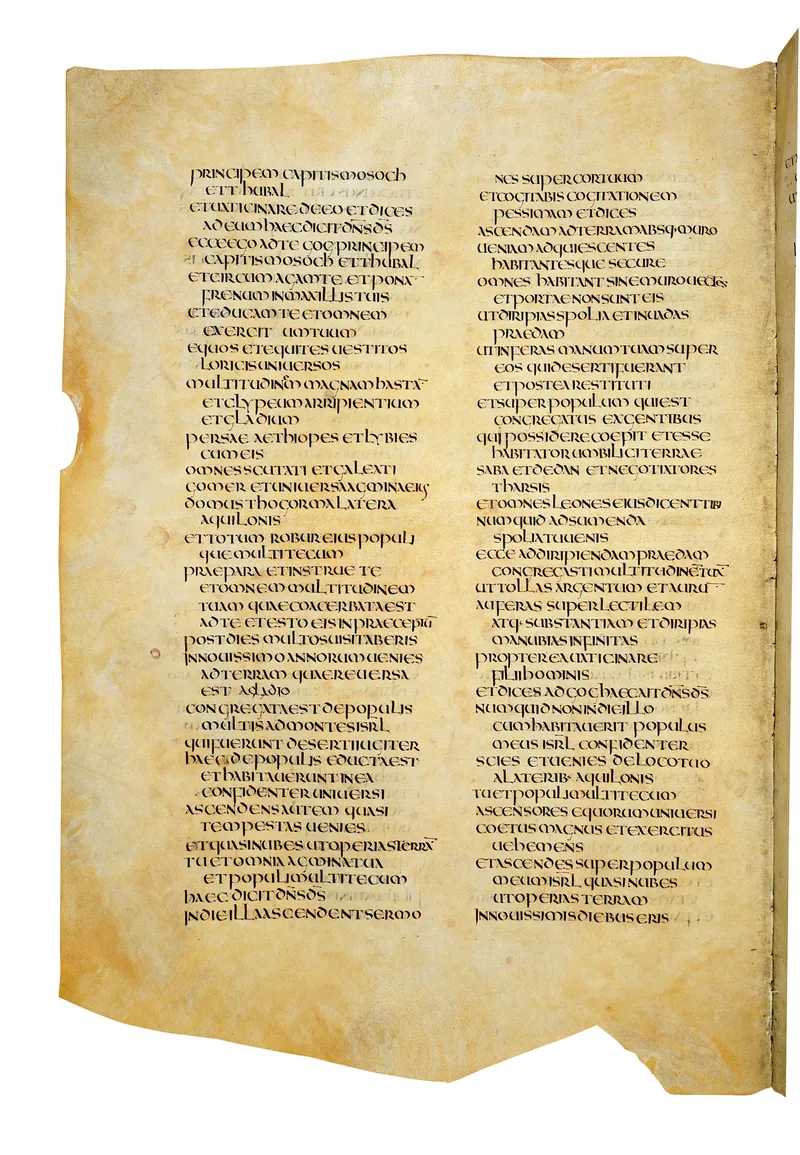 PRINCIPEM CAPITIS MOSOCH
ET THUBAL
ET UATICINARE DE EO ET DICES
AD EUM HAEC DICIT DN̄S D̄S
ECCE EGO AD TE GOG PRINCIPEM
CAPITIS MOSOCH ET THUBAL
ET CIRCUMAGAM TE ET PONĀ
FRENUM IN MAXILLIS TUIS
ET EDUCAM TE ET OMNEM
EXERCIT UM TUUM
EQUOS ET EQUITES UESTITOS
LORICIS UNIUERSOS
MULTITUDINEM MAGNAM HASTĀ
ET CLYPEUM ARRIPIENTIUM
ET GLADIUM
PERSAE AETHIOPES ET LYBIES
CUM EIS
OMNES SCUTATI ET GALEATI
GOMER ET UNIUERSA AGMINA EIUS
DOMUS THOGORMA LATERA
AQUILONIS
ET TOTUM ROBUR EIUS POPULI
QUE MULTI TECUM
PRAEPARA ET INSTRUE TE
ET OMNEM MULTITUDINEM
TUAM QUAE COACERBATA EST
AD TE ET ESTO EIS IN PRAECEPTŪ
POST DIES MULTOS UISITABERIS
IN NOUISSIMO ANNORUM UENIES
AD TERRAM QUAE REUERSA
EST A GLADIO
CONGREGATA EST DE POPULIS
MULTIS AD MONTES ISRL̄
QUI FUERUNT DESERTI IUGITER
HAEC DE POPULIS EDUCTA EST
ET HABITAUERUNT IN EA
CONFIDENTER UNIUERSI
ASCENDENS AUTEM QUASI
TEMPESTAS UENIES
ET QUASI NUBES UT OPERIAS TERRĀ
TU ET OMNIA AGMINA TUA
ET POPULI MULTI TECUM
HAEC DICIT DN̄S D̄S
IN DIE ILLA ASCENDENT SERMO
NES SUPER COR TUUM
ET COGITABIS COGITATIONEM
PESSIMAM ET DICES
ASCENDAM AD TERRAM ABSQ· MURO
UENIAM AD QUIESCENTES
HABITANTESQUE SECURE
OMNES HABITANT SINE MURO UECTES
ET PORTAE NON SUNT EIS
UT DIRIPIAS SPOLIA ET INUADAS
PRAEDAM
UT INFERAS MANUM TUAM SUPER
EOS QUI DESERTI FUERANT
ET POSTEA RESTITUTI
ET SUPER POPULUM QUI EST
CONGREGATUS EX GENTIBUS
QUI POSSIDERE COEPIT ET ESSE
HABITATOR UMBILICI TERRAE
SABA ET DEDAN ET NEGOTIATORES
THARSIS
ET OMNES LEONES EIUS DICENT TIBI
NUMQUID AD SUMENDA
SPOLIA TU UENIS
ECCE AD DIRIPIENDAM PRAEDAM
CONGREGASTI MULTITUDINĒ TUĀ
UT TOLLAS ARGENTUM ET AURŪ
AUFERAS SUPERLECTILEM
ATQ· SUBSTANTIAM ET DIRIPIAS
MANUBIAS INFINITAS
PROPTEREA UATICINARE
FILI HOMINIS
ET DICES AD GOG HAEC AIT DN̄S D̄S
NUMQUID NON IN DIE ILLO
CUM HABITAUERIT POPULUS
MEUS ISRL̄ CONFIDENTER
SCIES ET UENIES DE LOCO TUO
A LATERIB· AQUILONIS
TU ET POPULI MULTI TECUM
ASCENSORES EQUORUM UNIUERSI
COETUS MAGNUS ET EXERCITUS
UEHEMENS
ET ASCENDES SUPER POPULUM
MEUM ISRL̄ QUASI NUBES
UT OPERIAS TERRAM
IN NOUISSIMIS DIEBUS ERIS